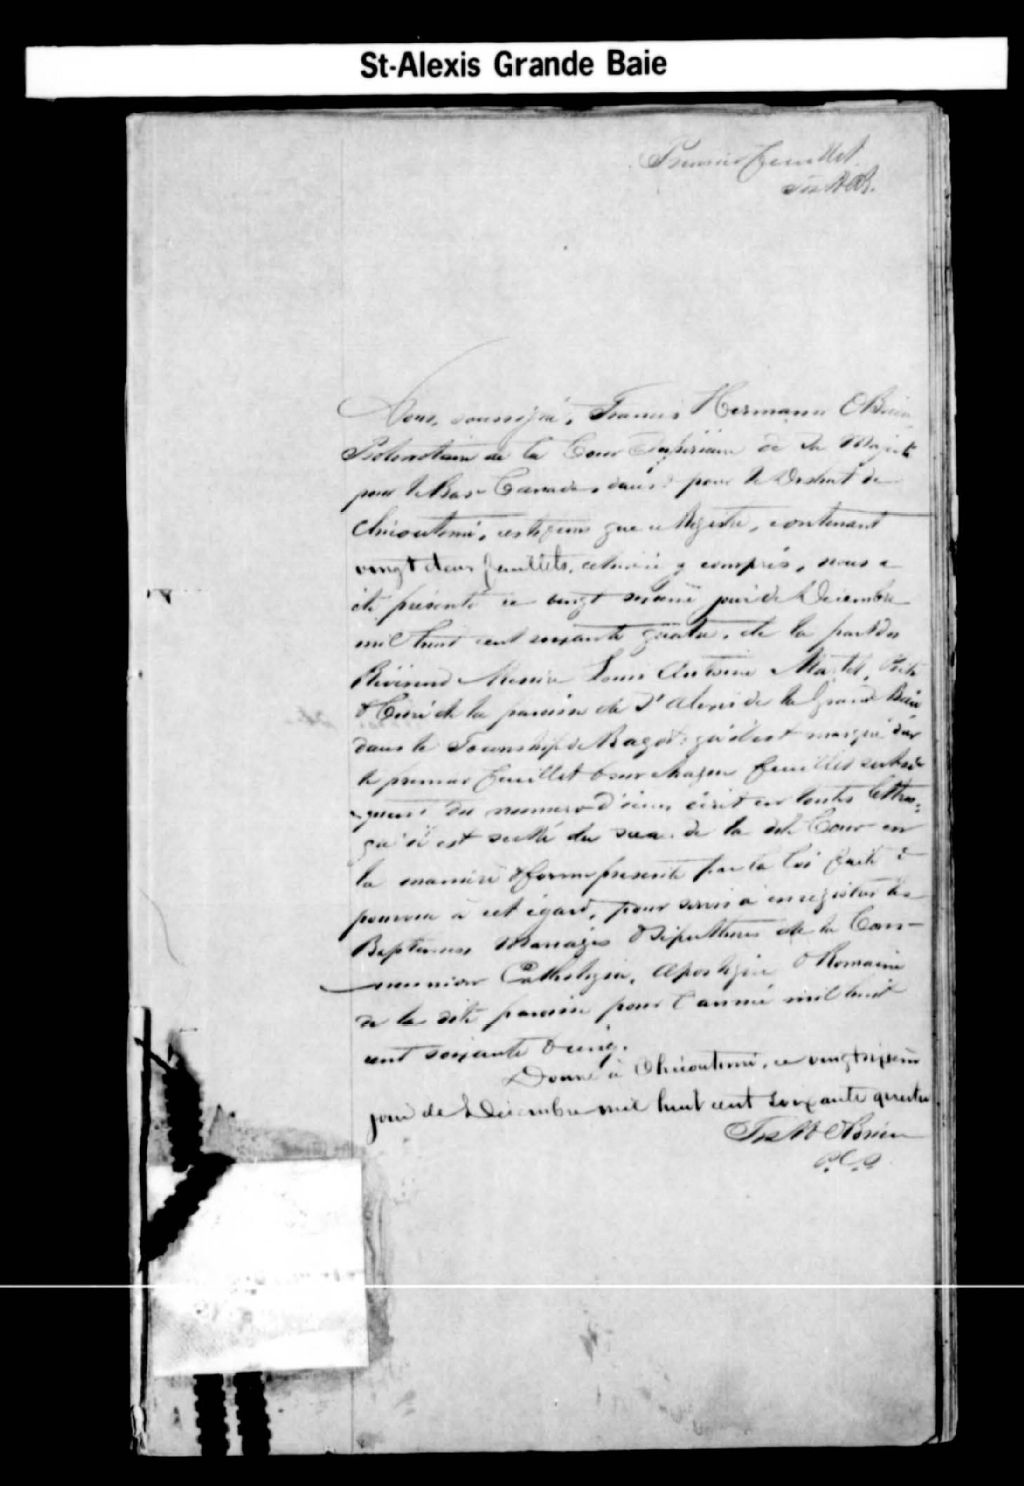 St-Alexis Grande Baie
Premier feuillet
Frs H OB.
Nous, soussigné, Francis Hermann OBrien
Protonotaire de la Cour Supérieure de Sa Majesté
pour le Bas Canada, dans & pour le District de
Chicoutimi, certifions que ce Régistre, contenant
vingt deux feuillets, celui ci y compris, nous a
été présenté ce vingt sixième jour de Décembre
mil huit cent soixante quatre, de la part du
Révérend Messire Louis Antoine Martel, Ptre
& Curé de la paroisse de St Alexis de la Grande Baie
dans le Township de Bagot; qu'il est marqué sur
le premier feuillet & sur chaque feuillet subsé-
quent du numéro d'icelui écrit en toutes lettres;
qu'il est scellé du sceau de la dite Cour en
la manière & forme prescrite par la loi faite &
pourvue à cet égard, pour servir à enregistrer les
Baptêmes Mariages & Sépultures de la Com-
munion Catholique, Apostolique & Romaine
de la dite paroisse pour l'année mil huit
cent soixante & cinq.
Donné à Chicoutimi, ce vingt sixième
jour de Décembre mil huit cent soixante quatre
Frs H OBrien
P.C.S.